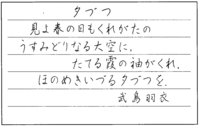 タづつ
見よ春の日もくれがたの
うすみどりなる大空に、
たてる霞の袖がくれ、
ほのめきいづるタづつを。
武島羽衣